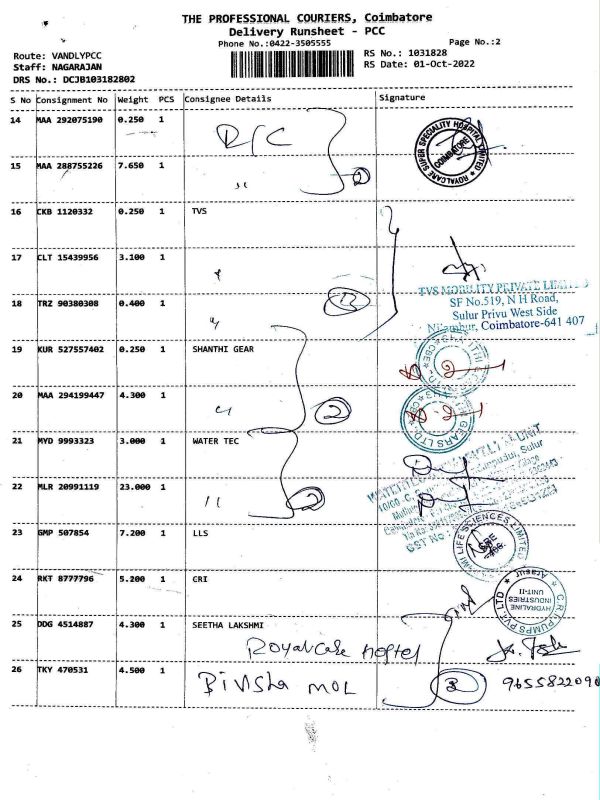 THE PROFESSIONAL COURIERS, Coimbatore
Delivery Runsheet - PCC
Phone No.:0422-3505555
Page No.:2
Route: VANDLYPCC
RS No.: 1031828
Staff: NAGARAJAN
RS Date: 01-Oct-2022
DRS No.: DCJB103182802
S No Consignment No Weight PCS Consignee Details Signature
14 MAA 292075190 0.250 1 R/C
ROYALCARE SUPER SPECIALITY HOSPITAL LIMITED
COIMBATORE
15 MAA 288755226 7.650 1 " 2
16 CKB 1120332 0.250 1 TVS
17 CLT 15439956 3.100 1
TVS MOBILITY PRIVATE LIMITED
SF No.519, N H Road,
18 TRZ 90380308 0.400 1
Sulur Privu West Side
Nilambur, Coimbatore-641 407
19 KUR 527557402 0.250 1 SHANTHI GEAR
20 MAA 294199447 4.300 1 " 2
GEARS LTD.
21 MYD 9993323 3.000 1 WATER TEC
22 MLR 20991119 23.000 1 " 2
23 GMP 507854 7.200 1 LLS
LIFE SCIENCES LIMITED
24 RKT 8777796 5.200 1 CRI
C.R.I. PUMPS PVT. LTD
HYDRALINE
INDUSTRIES
UNIT-II
Arasur
25 DDG 4514887 4.300 1 SEETHA LAKSHMI
Royalcare Hostel
26 TKY 470531 4.500 1 Binisha MOL 3 9655822090